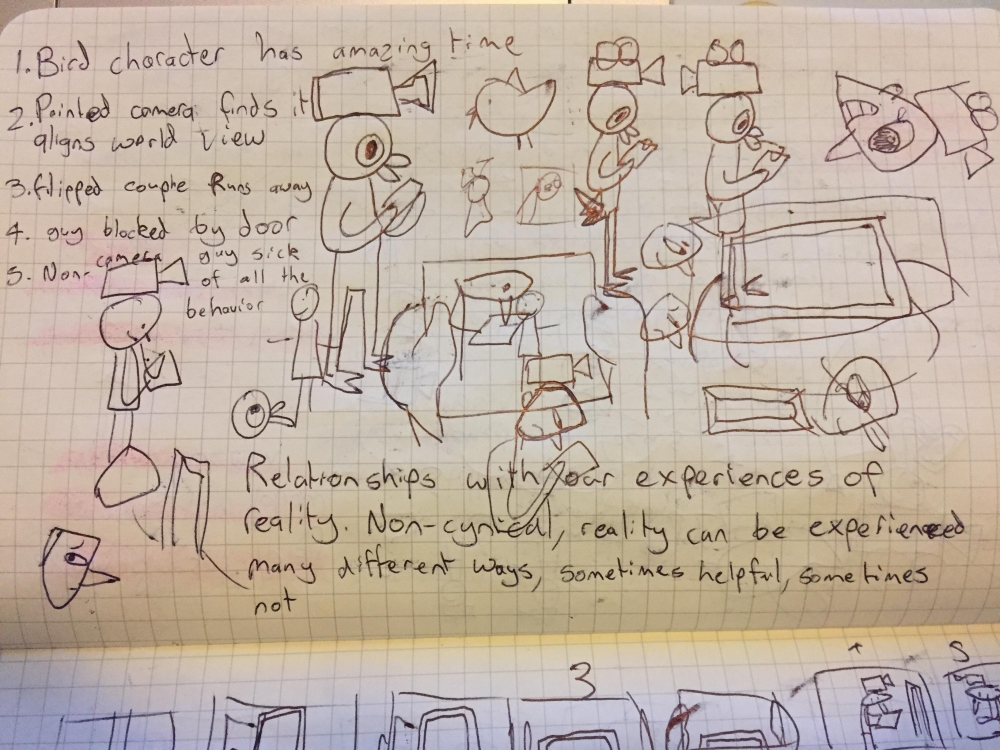 1. Bird character has amazing time
2. Pointed camera finds it
aligns world view
3. flipped couple Runs away
4. guy blocked by door
5. Non-camera guy sick
of all the
behavior
Relationships with our experiences of
reality. Non-cynical, reality can be experienced
many different ways, sometimes helpful, sometimes
not
3
S